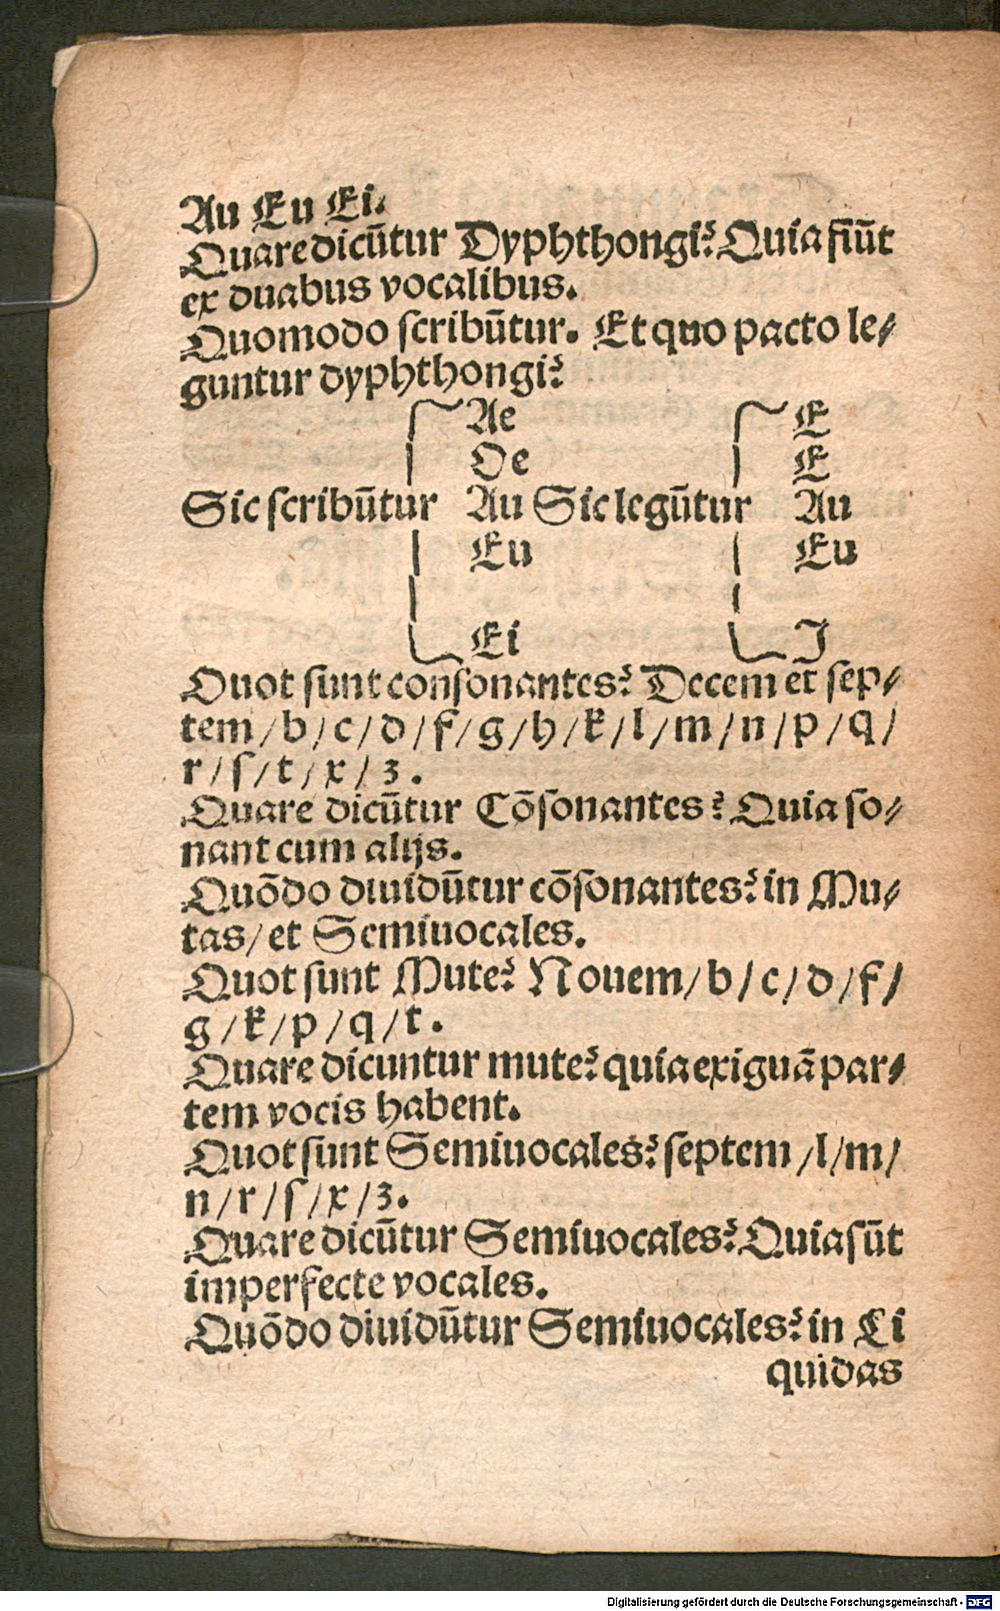 Au Eu Ei.
Quare dicũtur Dyphthongi? Quia fiũt
ex duabus vocalibus.
Quomodo scribũtur. Et quo pacto le⸗
guntur dyphthongi?
Ae E
Oe E
Sic scribũtur Au Sic legũtur Au
Eu Eu
Ei I
Quot sunt consonantes? Decem et sep⸗
tem / b / c / d / f / g / h / k / l / m / n / p / q /
r / ſ / t / x / z .
Quare dicũtur Cõsonantes? Quia so⸗
nant cum alijs.
Quõdo diuidũtur cõsonantes? in Mu⸗
tas / et Semiuocales.
Quot sunt Mute? Nouem / b / c / d / f /
g / k / p / q / t .
Quare dicuntur mute? quia exiguã par⸗
tem vocis habent.
Quot sunt Semiuocales? septem / l / m /
n / r / ſ / x / z.
Quare dicũtur Semiuocales? Quia sũt
imperfecte vocales.
Quõdo diuidũtur Semiuocales? in Li
quidas
Digitalisierung gefördert durch die Deutsche Forschungsgemeinschaft - DFG